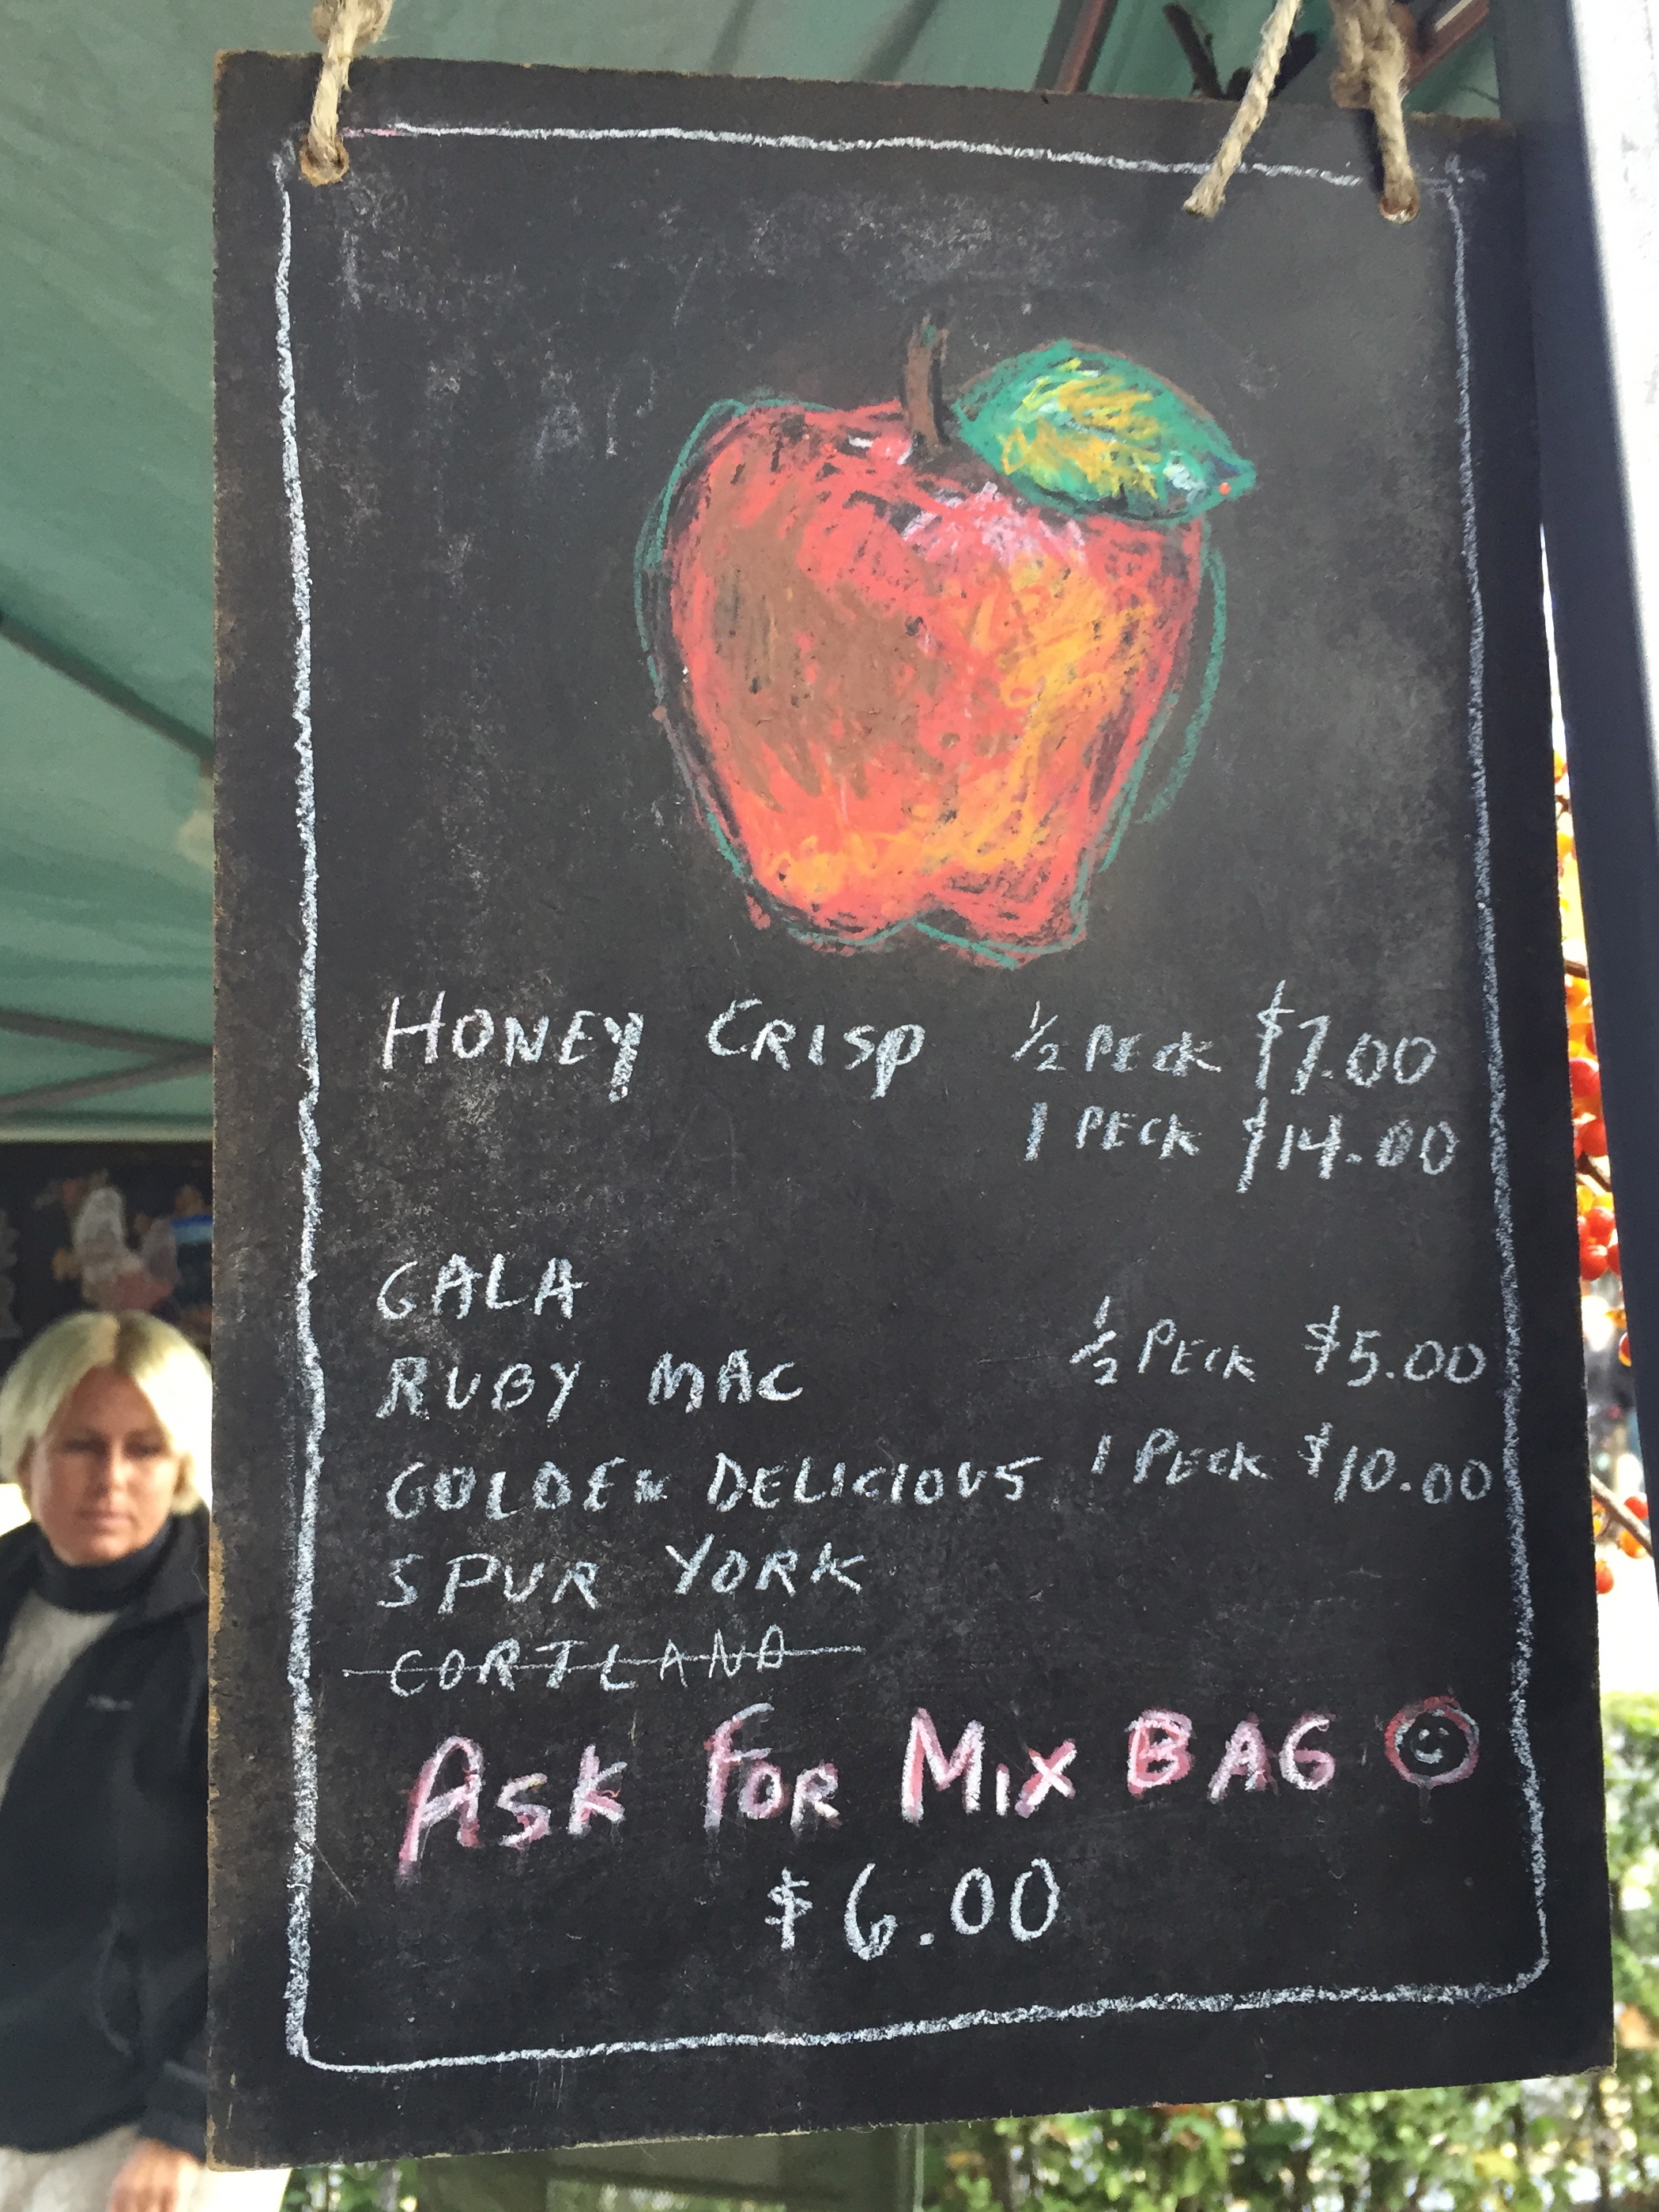 HONEY CRISP ½ PECK $7.00
1 PECK $14.00
GALA
½ PECK $5.00
RUBY MAC
1 PECK $10.00
GOLDEN DELICIOUS
SPUR YORK
CORTLAND
ASK FOR MIX BAG
$6.00